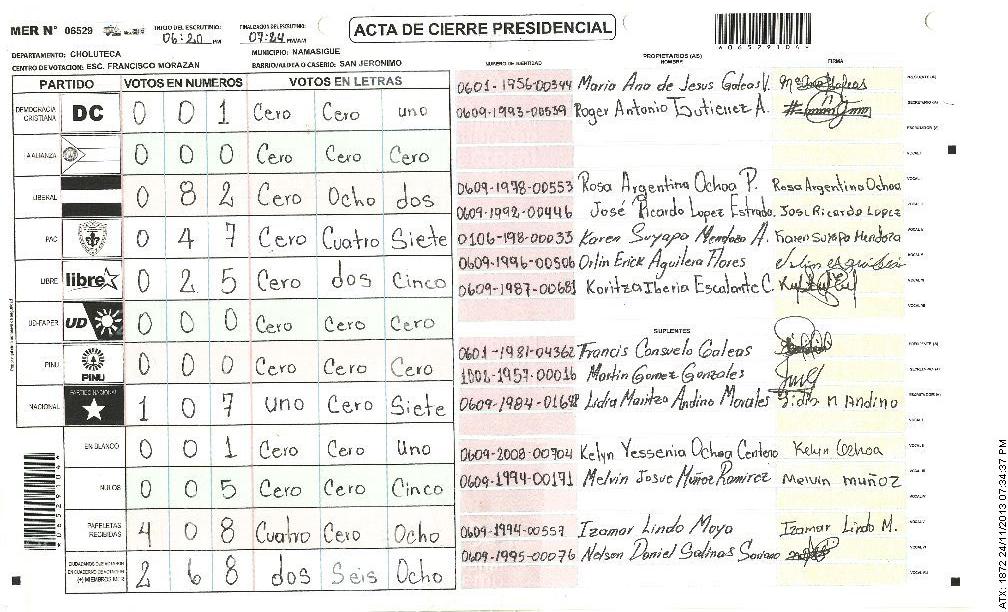 MER N° 06529 INICIO DEL ESCRUTINIO: 06:20 PM FINALIZACION DEL ESCRUTINIO: 07:24 PM/AM ACTA DE CIERRE PRESIDENCIAL
DEPARTAMENTO: CHOLUTECA MUNICIPIO: NAMASIGUE
CENTRO DE VOTACION: ESC. FRANCISCO MORAZAN BARRIO/ALDEA O CASERIO: SAN JERONIMO
PARTIDO VOTOS EN NUMEROS VOTOS EN LETRAS
DEMOCRACIA CRISTIANA DC 0 0 1 Cero Cero uno
LA ALIANZA 0 0 0 Cero Cero Cero
LIBERAL 0 8 2 Cero Ocho dos
PAC 0 4 7 Cero Cuatro Siete
LIBRE libre 0 2 5 Cero dos Cinco
UD-FAPER UD 0 0 0 Cero Cero Cero
PINU PINU 0 0 0 Cero Cero Cero
NACIONAL PARTIDO NACIONAL 1 0 7 uno Cero Siete
EN BLANCO 0 0 1 Cero Cero Uno
NULOS 0 0 5 Cero Cero Cinco
PAPELETAS RECIBIDAS 4 0 8 Cuatro Cero Ocho
CIUDADANOS QUE VOTARON EN CUADERNO DE VOTACION (+) MIEMBROS MER 2 6 8 dos Seis Ocho
NUMERO DE IDENTIDAD PROPIETARIOS (AS) NOMBRE FIRMA
0601-1956-00344 Maria Ana de Jesus Galeas V.
0609-1993-00539 Roger Antonio Gutierrez A.
0609-1978-00553 Rosa Argentina Ochoa P. Rosa Argentina Ochoa
0609-1992-00446 José Ricardo Lopez Estrada José Ricardo Lopez
0106-198-00033 Karen Suyapa Mendoza A. Karen Suyapa Mendoza
0609-1996-00506 Orlin Erick Aguilera Flores
0609-1987-00681 Koritza Iberia Escalante C.
SUPLENTES
0601-1981-04362 Francis Consuelo Galeas
1001-1957-00016 Martin Gomez Gonzales
0609-1984-01698 Lidia Maritza Andino Morales Lidia M Andino
0609-2008-00704 Kelyn Yessenia Ochoa Centeno Kelyn Ochoa
0609-1994-00171 Melvin Josue Muñoz Ramirez Melvin Muñoz
0609-1994-00557 Izamar Lindo Moya Izamar Lindo M.
0609-1995-00076 Nelson Daniel Salinas Soriano
ATX: 1872 24/11/2013 07:34:37 PM